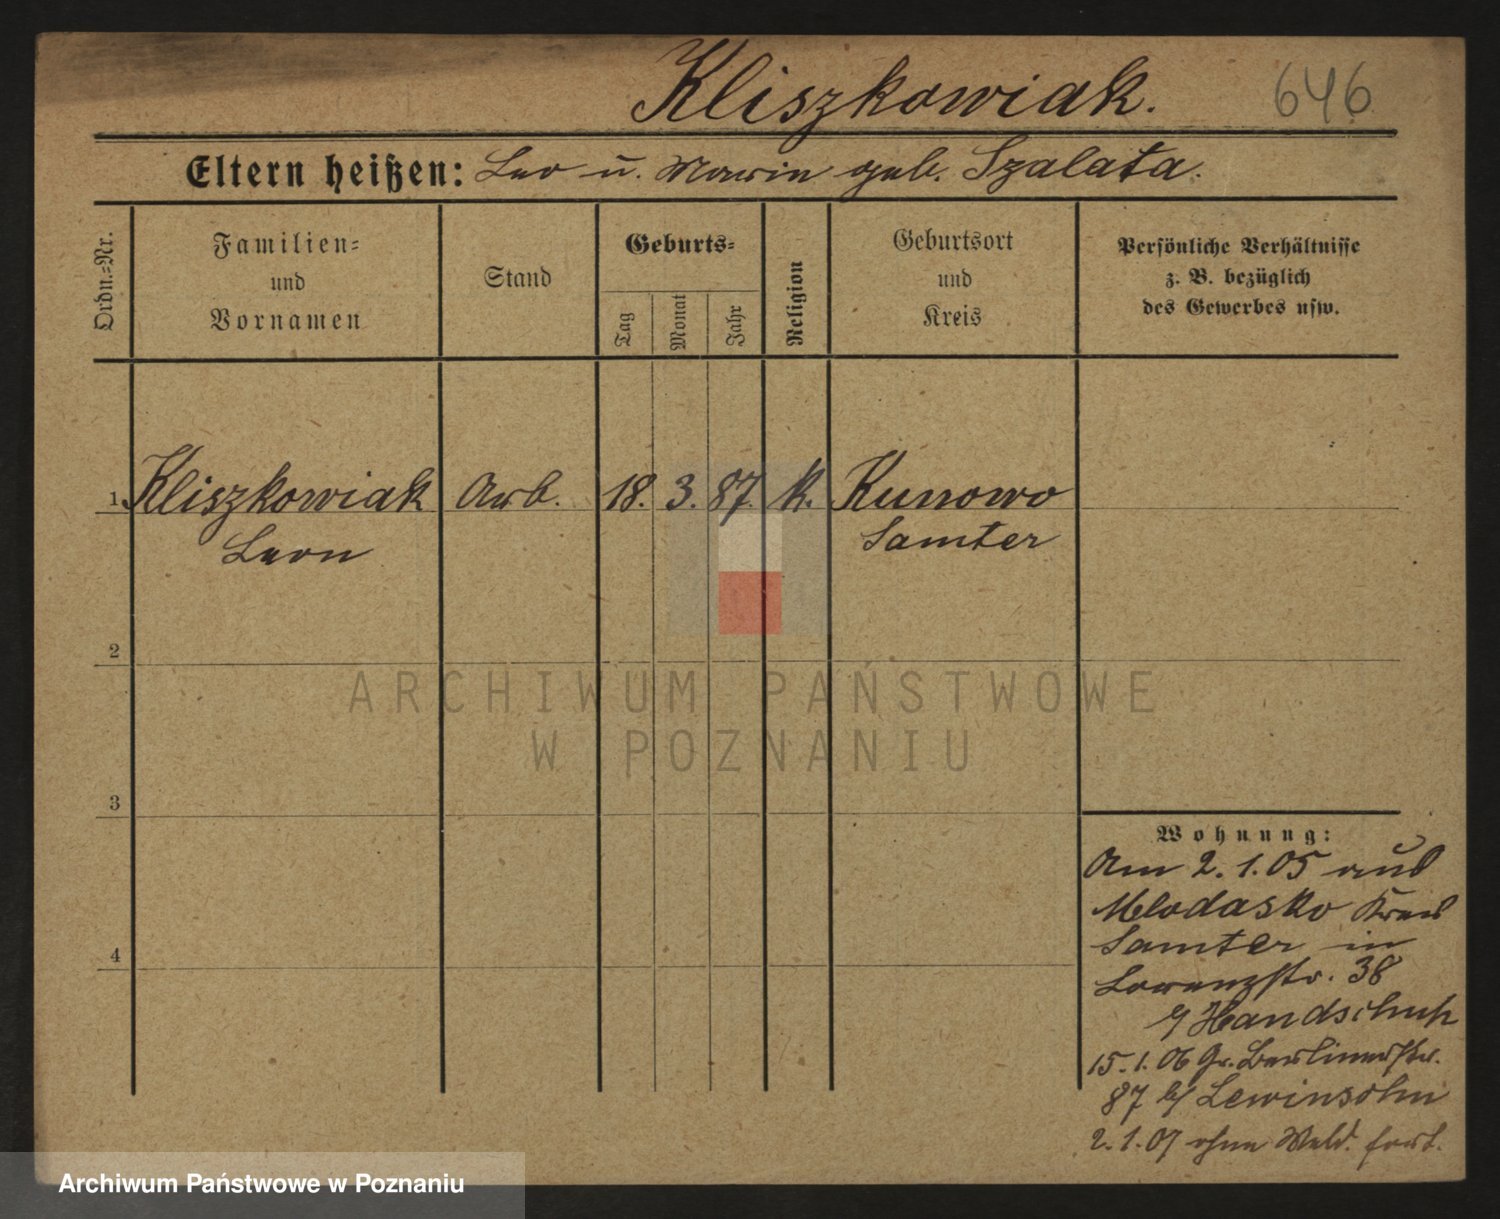 Kliszkowiak. 646
Eltern heißen: Leo u. Marie geb. Szalata.
Ordn.-Nr.
Familien-
und
Vornamen
Stand
Geburts-
Tag
Monat
Jahr
Religion
Geburtsort
und
Kreis
Persönliche Verhältnisse
z. B. bezüglich
des Gewerbes usw.
1. Kliszkowiak Arb. 18. 3. 87. k. Kunowo
Leon Samter
2
ARCHIWUM PAŃSTWOWE
W POZNANIU
3
4
Wohnung:
Am 2.1.05 aus
Mlodasko Kreis
Samter in
Lorenzstr. 38
b/ Handschuh
15.1.06 Gr. Berlinerstr.
87 b/ Lewinsohn
2.1.07 ohne Meld. fort.
Archiwum Państwowe w Poznaniu